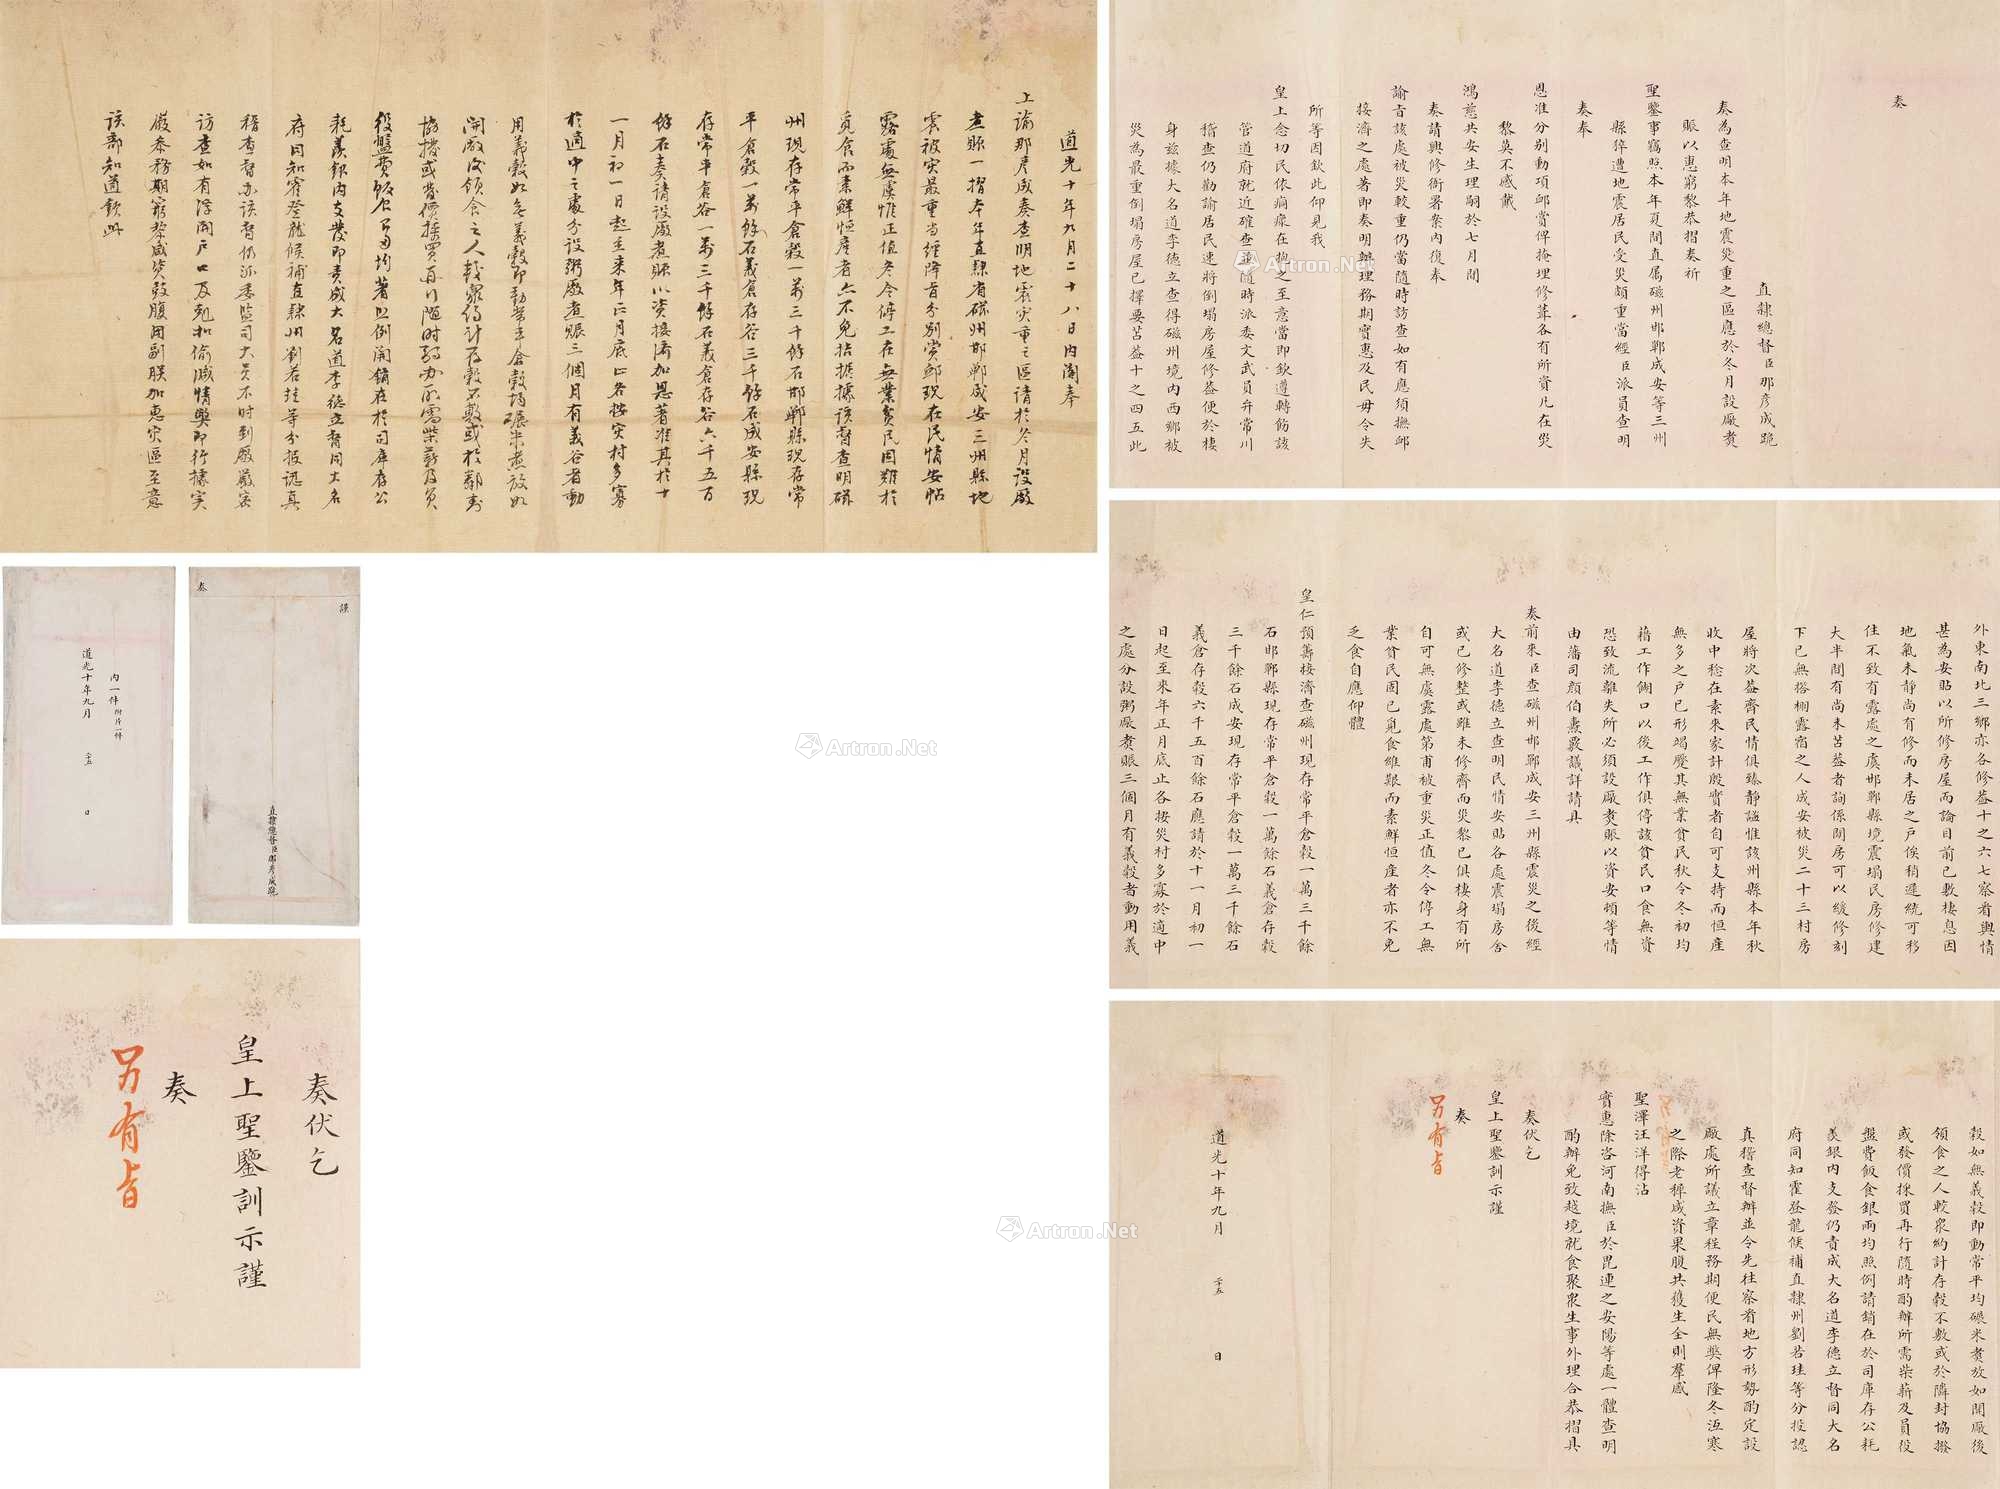 奏
直隸總督臣那彥成跪
奏為查明本年地震災重之區應於冬月設廠煑
賑以惠窮黎恭摺奏祈
聖鑒事竊照本年夏間直属磁州邯鄲成安等三州
縣猝遭地震居民受災頗重當經臣派員查明
奏奉
恩准分别動項邺賞俾掩埋修葺各有所資凡在災
黎莫不感戴
鴻慈共安生理嗣於七月間
奏請興修衙署案內復奉
諭旨該處被災較重仍當隨時訪查如有應須撫邺
接濟之處著即奏明辦理務期實惠及民毋令失
所等因欽此仰見我
皇上念切民依痌瘝在抱之至意當即欽遵轉飭該
管道府就近確查並隨時派委文武員弁常川
稽查仍勸諭居民速將倒塌房屋修葢便於棲
身兹據大名道李德立查得磁州境內西鄉被
災為最重倒塌房屋已擇要苫葢十之四五此
外東南北三鄉亦各修葢十之六七察看輿情
甚為安貼以所修房屋而論目前已敷棲息因
地氣未靜尚有修而未居之戶俟稍遲統可移
住不致有露處之虞邯鄲縣境震塌民房修建
大半間有尚未苫葢者詢係閒房可以緩修刻
下已無搭棚露宿之人成安被災二十三村房
屋將次葢齊民情俱臻靜謐惟該州縣本年秋
收中稔在素來家計殷實者自可支持而恒産
無多之戶已形竭蹷其無業貧民秋令冬初均
藉工作餬口以後工作俱停該貧民口食無資
恐致流離失所必須設厰煑賑以資安頓等情
由藩司顔伯燾覈議詳請具
奏前來臣查磁州邯鄲成安三州縣震災之後經
大名道李德立查明民情安貼各處震塌房舍
或已修整或雖未修齊而災黎已俱棲身有所
自可無虞露處第甫被重災正值冬令停工無
業貧民固已覓食維艱而素鮮恒産者亦不免
乏食自應仰體
皇仁預籌接濟查磁州現存常平倉穀一萬三千餘
石邯鄲縣現存常平倉穀一萬餘石義倉存穀
三千餘石成安現存常平倉穀一萬三千餘石
義倉存穀六千五百餘石應請於十一月初一
日起至來年正月底止各按災村多寡於適中
之處分設粥厰煑賑三個月有義穀者動用義
穀如無義穀即動常平均碾米煑放如開厰後
領食之人較眾約計存穀不敷或於隣封協撥
或發價採買再行隨時酌辦所需柴薪及員役
盤費飯食銀兩均照例請銷在於司庫存公耗
羨銀內支發仍責成大名道李德立督同大名
府同知霍登龍候補直隸州劉若珪等分投認
真稽查督辦並令先往察看地方形勢酌定設
厰處所議立章程務期便民無獘俾隆冬沍寒
之際老穉咸資果腹共獲生全則羣感
聖澤汪洋得沾
實惠除咨河南撫臣於毘連之安陽等處一體查明
酌辦免致越境就食聚眾生事外理合恭摺具
奏伏乞
皇上聖鑒訓示謹
奏
另有旨
道光十年九月 二十五 日
道光十年九月二十八日內閣奉
上諭那彥成奏查明地震災重之區請於冬月設廠
煮賑一摺本年直隸省磁州邯鄲成安三州縣地
震被災最重當經降旨分別賞邺現在民情安帖
露處無虞惟正值冬令停工在無業貧民固難於
覓食而素鮮恒產者亦不免拮据據該督查明磁
州現存常平倉穀一萬三千餘石邯鄲縣現存常
平倉穀一萬餘石義倉存谷三千餘石成安縣現
存常平倉谷一萬三千餘石義倉存谷六千五百
餘石奏請設廠煮賑以資接濟加恩著准其於十
一月初一日起至來年正月底止各按災村多寡
於適中之處分設粥廠煮賑三個月有義谷者動
用義穀如無義穀即動常平倉穀均碾米煮放如
開廠後領食之人較眾約計存穀不敷或於鄰封
協撥或發價採買再行隨時酌办所需柴薪及員
役盤費飯食銀两均著照例開銷在於司庫存公
耗羨銀內支發即責成大名道李德立督同大名
府同知霍登龍候補直隸州劉若珪等分投認真
稽查督办該督仍派委監司大員不時到廠嚴密
訪查如有浮開戶口及剋扣偷減情獘即行據實
嚴參務期窮黎咸資鼓腹用副朕加惠災區至意
該部知道欽此
內一件 附片一件
道光十年九月 二十五 日
謹
奏
直隸總督臣那彥成跪
奏伏乞
皇上聖鑒訓示謹
奏
另有旨
Artron.Net
Artron.Net
Artron.Net
Artron.Net